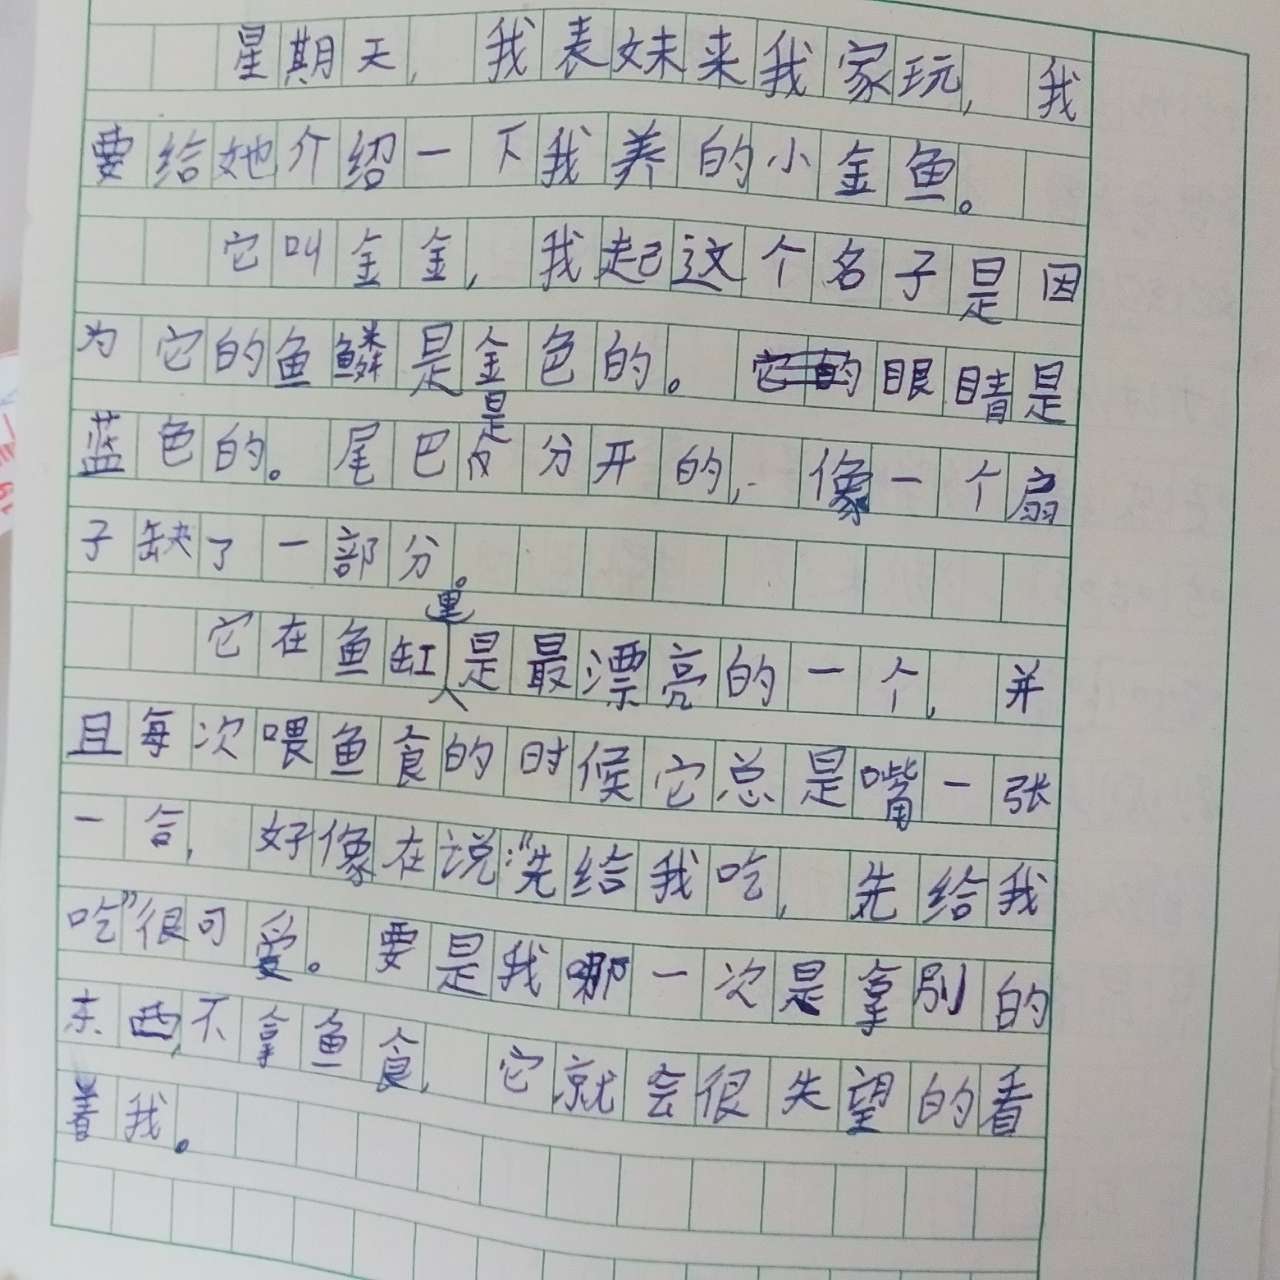 星期天，我表妹来我家玩，我
要给她介绍一下我养的小金鱼。
它叫金金，我起这个名子是因
为它的鱼鳞是金色的。眼睛是
蓝色的。尾巴是分开的，像一个扇
子缺了一部分。
它在鱼缸里是最漂亮的一个，并
且每次喂鱼食的时候它总是嘴一张
一合，好像在说：“先给我吃，先给我
吃”很可爱。要是我哪一次是拿别的
东西，不拿鱼食，它就会很失望的看
着我。